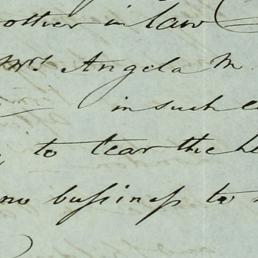 other in law
Mrs Angela M.
in such
to tear the he
no bussiness to